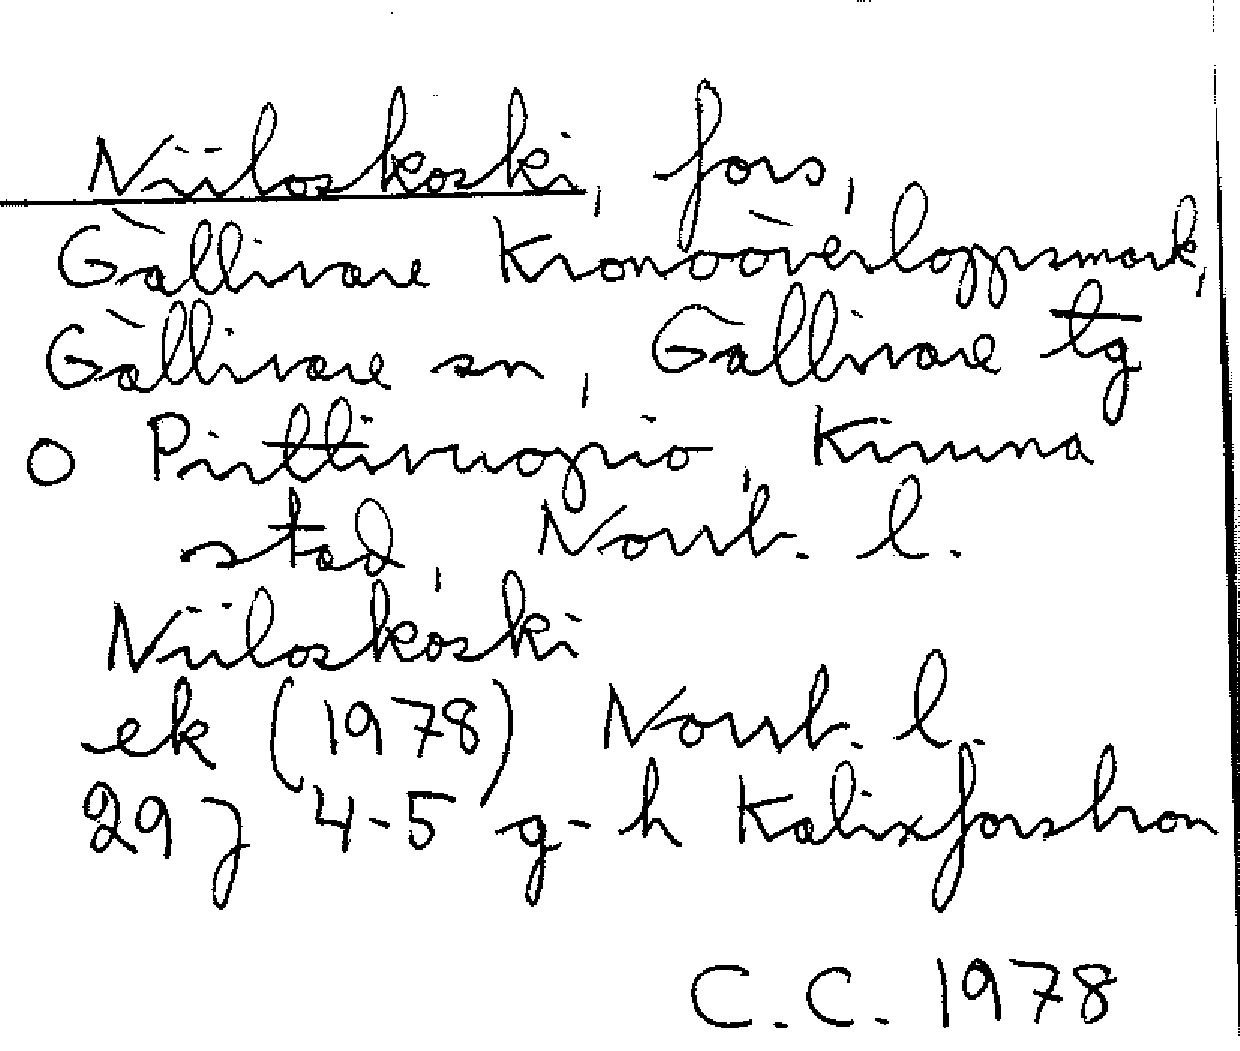 Niiloskoski, fors,
Gällivare Kronoöverloppsmark,
Gällivare sn, Gällivare tg
o Pirttivuopio, Kiruna
stad, Norrb. l.
Niiloskoski
ek (1978) Norrb. l.
29 J 4-5 g-h Kalixforsbron
C.C. 1978